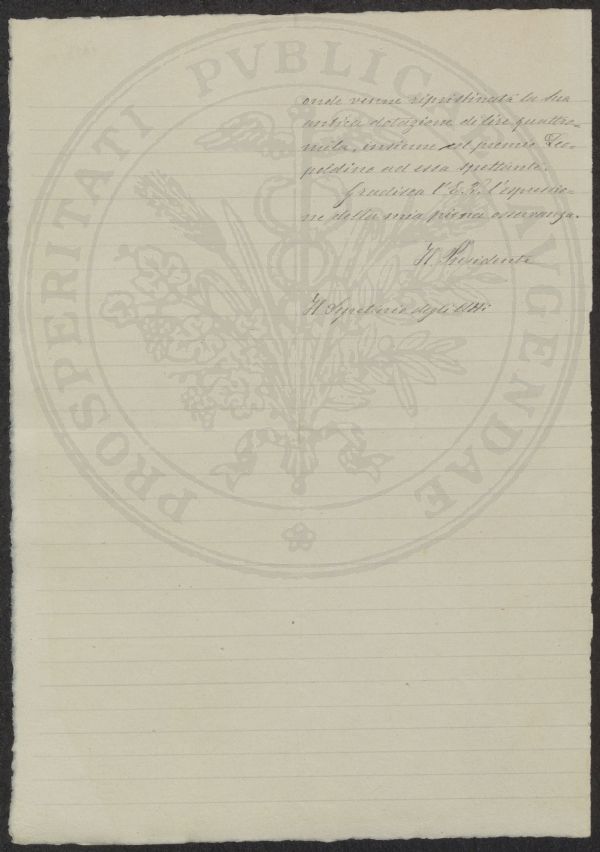 PROSPERITATI PVBLICAE AVGENDAE
onde venne ripristinata la sua
antica dotazione di lire quattro-
mila, insieme al premio Leo-
poldino ad essa spettante.
Gradisca l'E. V. l'espressio-
ne della mia piena osservanza.
Il Presidente
Il Segretario degli Atti